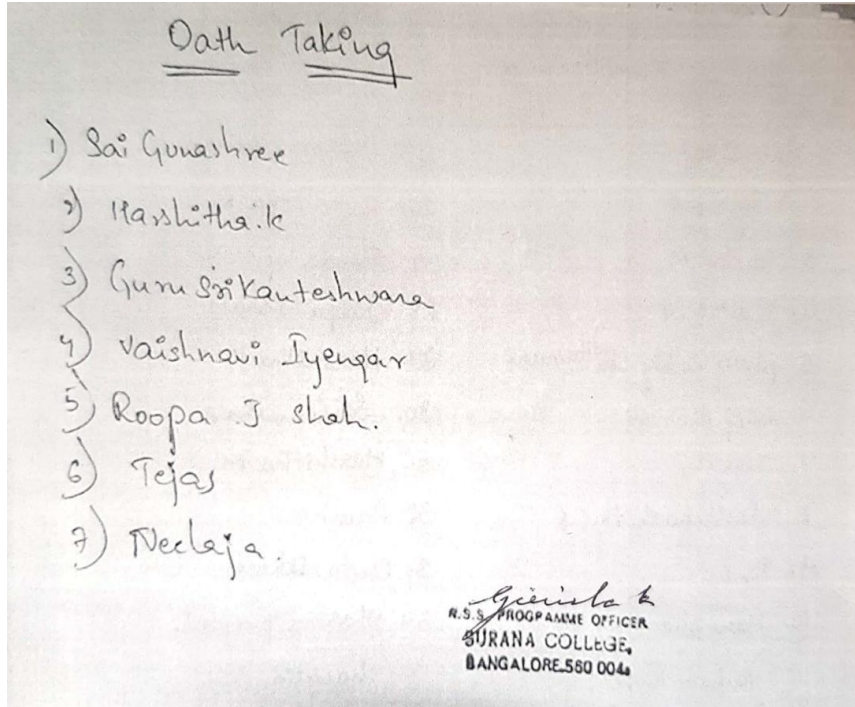 Oath Taking
1) Sai Gunashree
2) Harshitha.k
3) Guru Srikanteshwara
4) Vaishnavi Iyengar
5) Roopa J shah.
6) Tejas
7) Neelaja.
N.S.S. PROGRAMME OFFICER
SURANA COLLEGE,
BANGALORE-560 004.